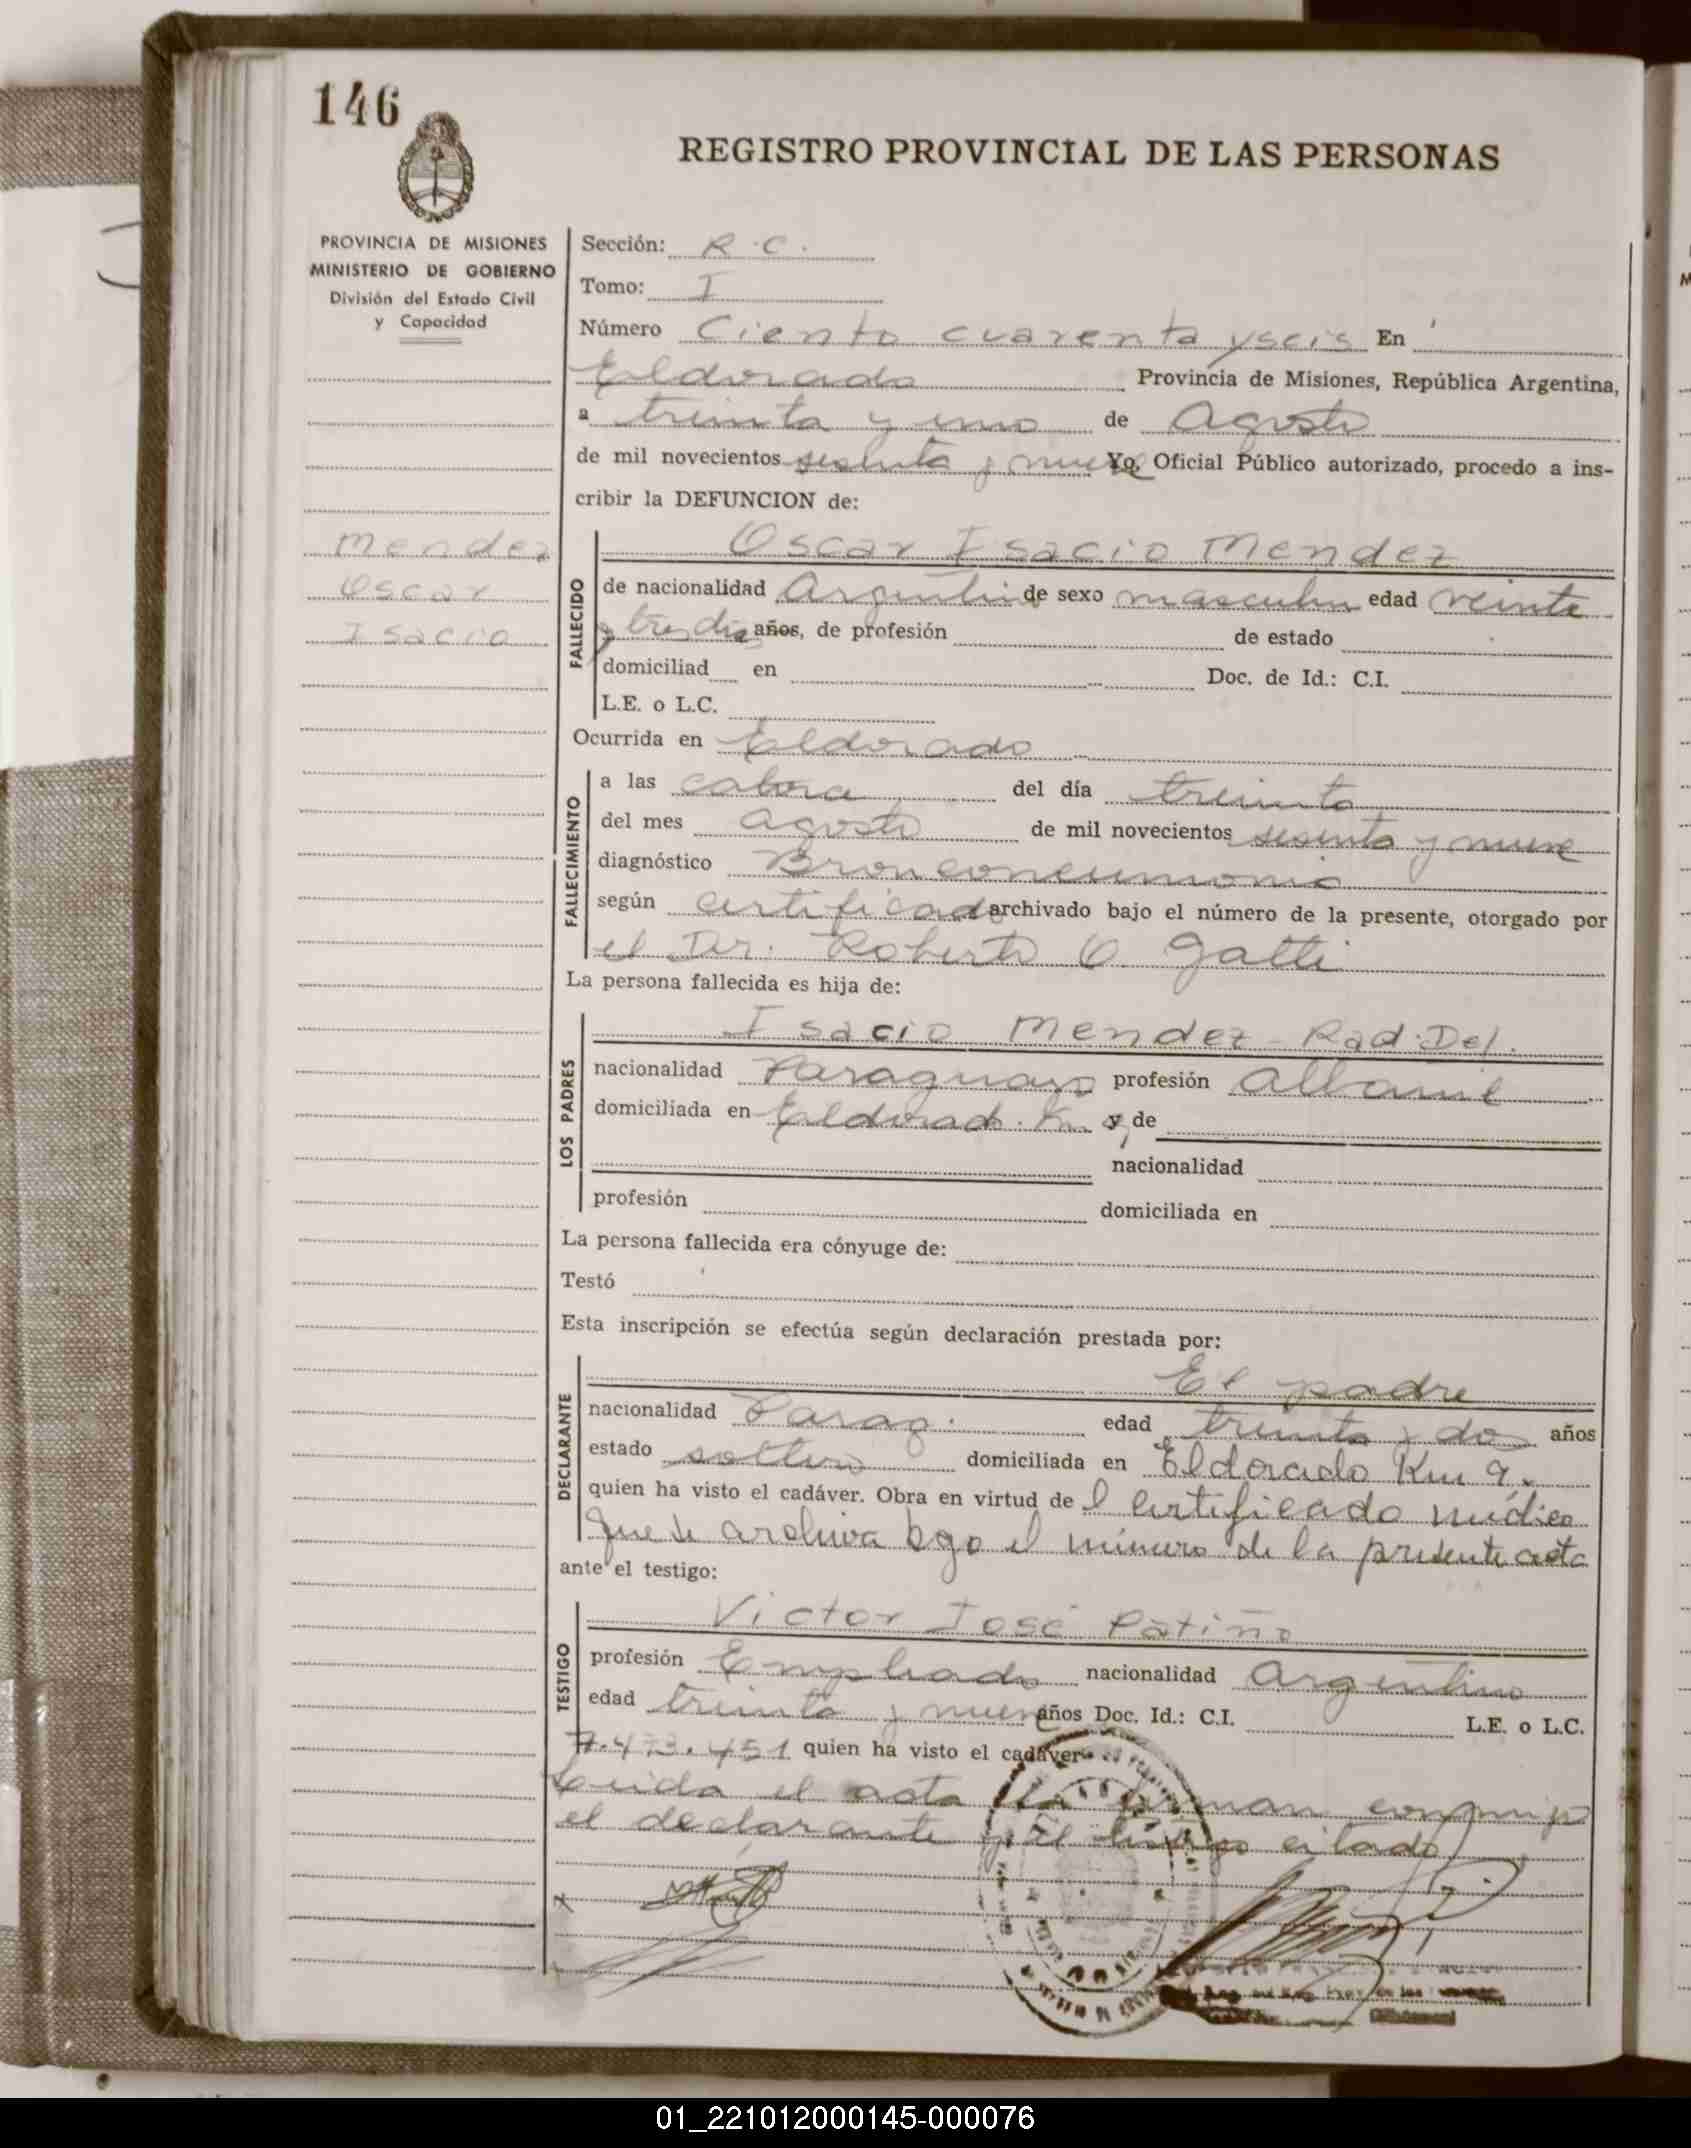 146
REGISTRO PROVINCIAL DE LAS PERSONAS
PROVINCIA DE MISIONES
MINISTERIO DE GOBIERNO
División del Estado Civil
y Capacidad
Sección: R.C.
Tomo: I
Número Ciento cuarenta y seis En
Eldorado Provincia de Misiones, República Argentina,
a treinta y uno de Agosto
de mil novecientos sesenta y nueve Yo, Oficial Público autorizado, procedo a ins-
cribir la DEFUNCION de:
Mendez
Oscar
Isacio
FALLECIDO
Oscar Isacio Mendez
de nacionalidad Argentino de sexo masculino edad veinte
y tres días años, de profesión de estado
domiciliad en Doc. de Id.: C.I.
L.E. o L.C.
Ocurrida en Eldorado
FALLECIMIENTO
a las catorce del día treinta
del mes Agosto de mil novecientos sesenta y nueve
diagnóstico Bronconeumonia
según certificado archivado bajo el número de la presente, otorgado por
el Dr. Roberto O. Galli
La persona fallecida es hija de:
LOS PADRES
Isacio Mendez - Rad. Del.
nacionalidad Paraguayo profesión Albanil
domiciliada en Eldorado. Km 9, y de
nacionalidad
profesión domiciliada en
La persona fallecida era cónyuge de:
Testó
Esta inscripción se efectúa según declaración prestada por:
DECLARANTE
El padre
nacionalidad Parag. edad treinta y dos años
estado soltero domiciliada en Eldorado Km 9.
quien ha visto el cadáver. Obra en virtud de l certificado médico
que se archiva bajo el número de la presente acta
ante el testigo:
TESTIGO
Victor José Patiño
profesión Empleado nacionalidad Argentino
edad treinta y nueve años Doc. Id.: C.I. L.E. o L.C.
7.473.451 quien ha visto el cadáver
Leida el acta la firman conmigo
el declarante y el testigo citado
01_221012000145-000076